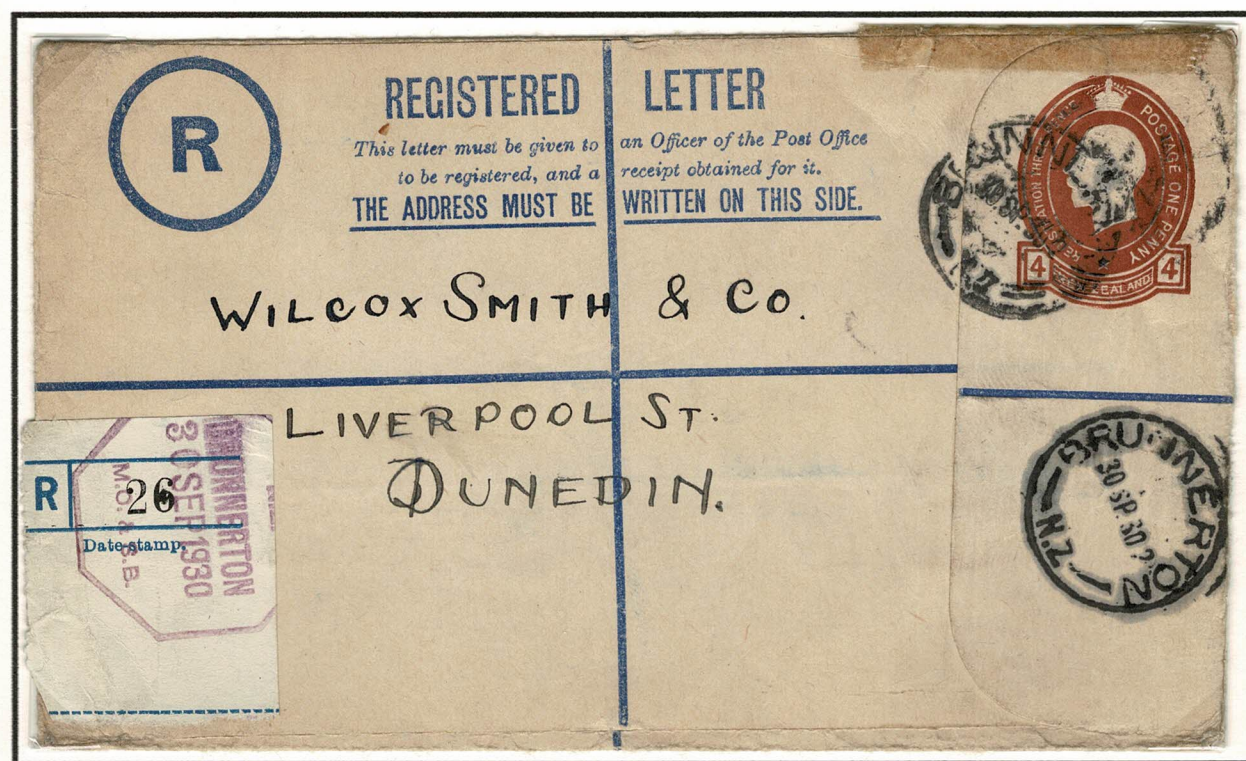 REGISTERED LETTER
R
This letter must be given to an Officer of the Post Office
to be registered, and a receipt obtained for it.
THE ADDRESS MUST BE WRITTEN ON THIS SIDE.
POSTAGE ONE PENNY
4 4
NEW ZEALAND
WILCOX SMITH & CO.
LIVERPOOL ST.
DUNEDIN.
R 26
Date-stamp.
BRUNNERTON
30 SEP 1930
M.O. & S.B.
BRUNNERTON
30 SP. 30
N.Z